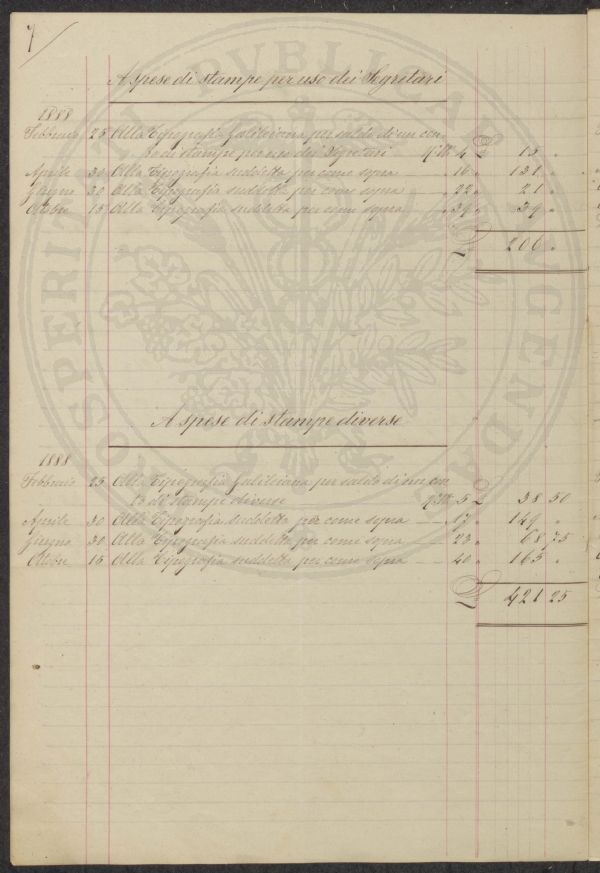 7
A spese di stampe per uso dei Segretari
1888
Febbraio 25 Alla Tipografia Galileiana per saldo di un con-
to di stampe per uso dei Segretari 4 £ 13 "
Aprile 30 Alla Tipografia suddetta per come sopra " 16 " 131 "
Giugno 30 Alla Tipografia suddetta per come sopra " 22 " 21 "
Ottobre 15 Alla Tipografia suddetta per come sopra " 39 " 39 "
£ 200 "
A spese di stampe diverse
1888
Febbraio 25 Alla Tipografia Galileiana per saldo di un con
to di stampe diverse 5 £ 38 50
Aprile 30 Alla Tipografia suddetta per come sopra " 17 " 149 "
Giugno 30 Alla Tipografia suddetta per come sopra " 23 " 68 75
Ottobre 15 Alla Tipografia suddetta per come sopra " 40 " 165 "
£ 421 25
PROSPERITATI PUBLICAE AUGENDAE